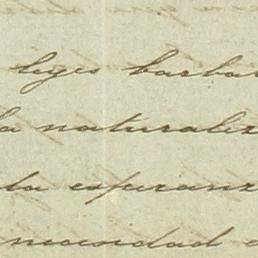 leyes barbar
la naturalez
la esperanz
necesidad